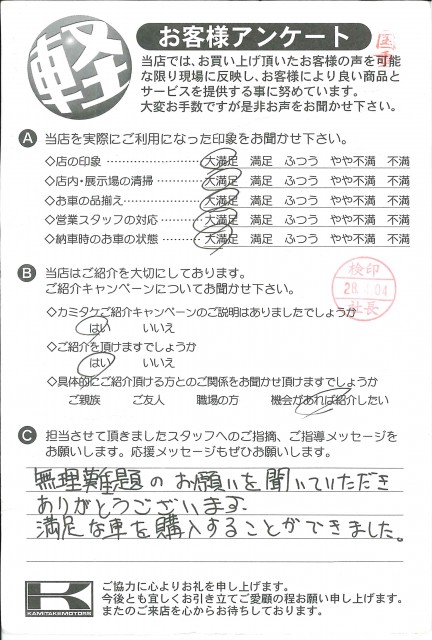 軽
お客様アンケート
当店では、お買い上げ頂いたお客様の声を可能
な限り現場に反映し、お客様により良い商品と
サービスを提供する事に努めています。
大変お手数ですが是非お声をお聞かせ下さい。
A 当店を実際にご利用になった印象をお聞かせ下さい。
◇店の印象 大満足 満足 ふつう やや不満 不満
◇店内・展示場の清掃 大満足 満足 ふつう やや不満 不満
◇お車の品揃え 大満足 満足 ふつう やや不満 不満
◇営業スタッフの対応 大満足 満足 ふつう やや不満 不満
◇納車時のお車の状態 大満足 満足 ふつう やや不満 不満
B 当店はご紹介を大切にしております。
ご紹介キャンペーンについてお聞かせ下さい。
検印
社長
◇カミタケご紹介キャンペーンのご説明はありましたでしょうか
はい いいえ
◇ご紹介を頂けますでしょうか
はい いいえ
◇具体的にご紹介頂ける方とのご関係をお聞かせ頂けますでしょうか
ご親族 ご友人 職場の方 機会があれば紹介したい
C 担当させて頂きましたスタッフへのご指摘、ご指導メッセージを
お願いします。応援メッセージもぜひお願いします。
無理難題のお願いを聞いていただき
ありがとうございます.
満足な車を購入することができました。
K
KAMITAKEMOTORS
ご協力に心よりお礼を申し上げます。
今後とも宜しくお引き立てご愛顧の程お願い申し上げます。
またのご来店を心からお待ちしております。